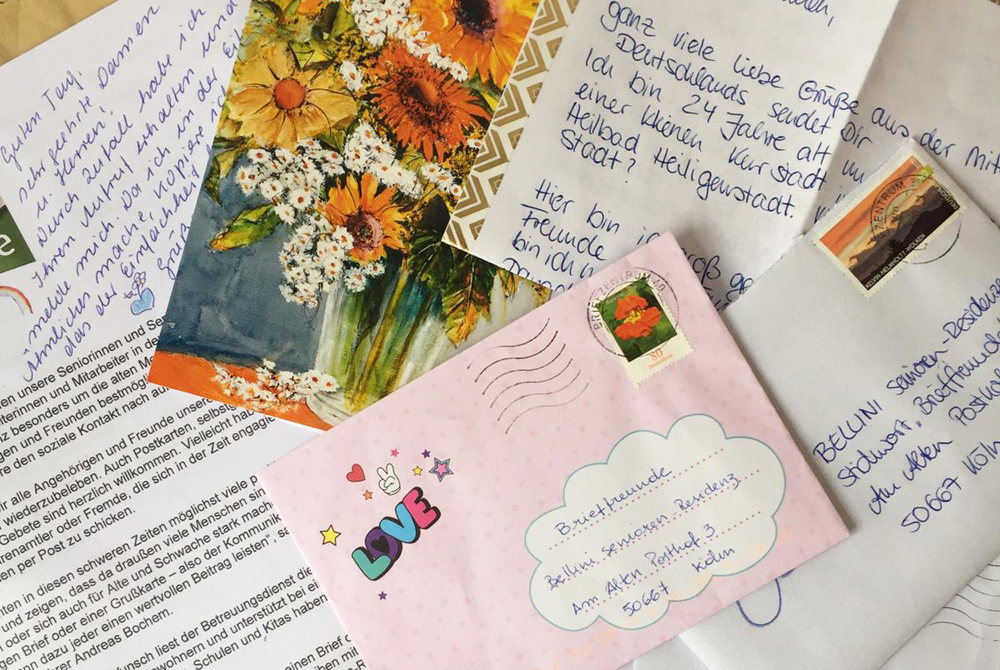 Guten Tag,
sehr geehrte Damen
u. Herren!
Durch Zufall habe ich
Ihren Aufruf erhalten und
melde mich. Da ich in der
ähnliches mache, kopiere
das der Einfachheit
en unsere Seniorinnen und Sen
iterinnen und Mitarbeiter in de
z besonders um die alten Me
gen und Freunden bestmög
re den soziale Kontakt nach au
ir alle Angehörigen und Freunde unsere
wiederzubeleben. Auch Postkarten, selbstg
Gebete sind herzlich willkommen. Vielleicht hab
renamtler oder Freunde, die sich in der Zeit engagie
en per Post zu schicken.
nten in diesen schweren Zeiten möglichst viele p
und zeigen, dass da draußen viele Menschen sin
n oder sich auch für Alte und Schwache stark mach
gen Brief oder einer Grußkarte – also der Kommunik
nn dazu jeder einen wertvollen Beitrag leisten", se
rer Andreas Bochem.
unsch liest der Betreuungsdienst die
wohnern und unterstützt bei ei
Schulen und Kitas haben
einen Brief o
ganz viele liebe Grüße aus der Mitte
Deutschlands sendet Dir
Ich bin 24 Jahre alt
einer kleinen Kurstadt
Heilbad Heiligenstadt.
Stadt?
Hier bin ich groß ge
Freunde
bin ich
BRIEFZENTRUM
80
LOVE
Brieffreunde
Bellini Senioren Residenz
Am Alten Posthof 3
50667 Köln
ZENTRUM
KELVIN-HELMHOLTZ-WOLKEN
BELLINI Senioren-Residenz
Stichwort „Brieffreunde
Am Alten Posthof
50667 Köln